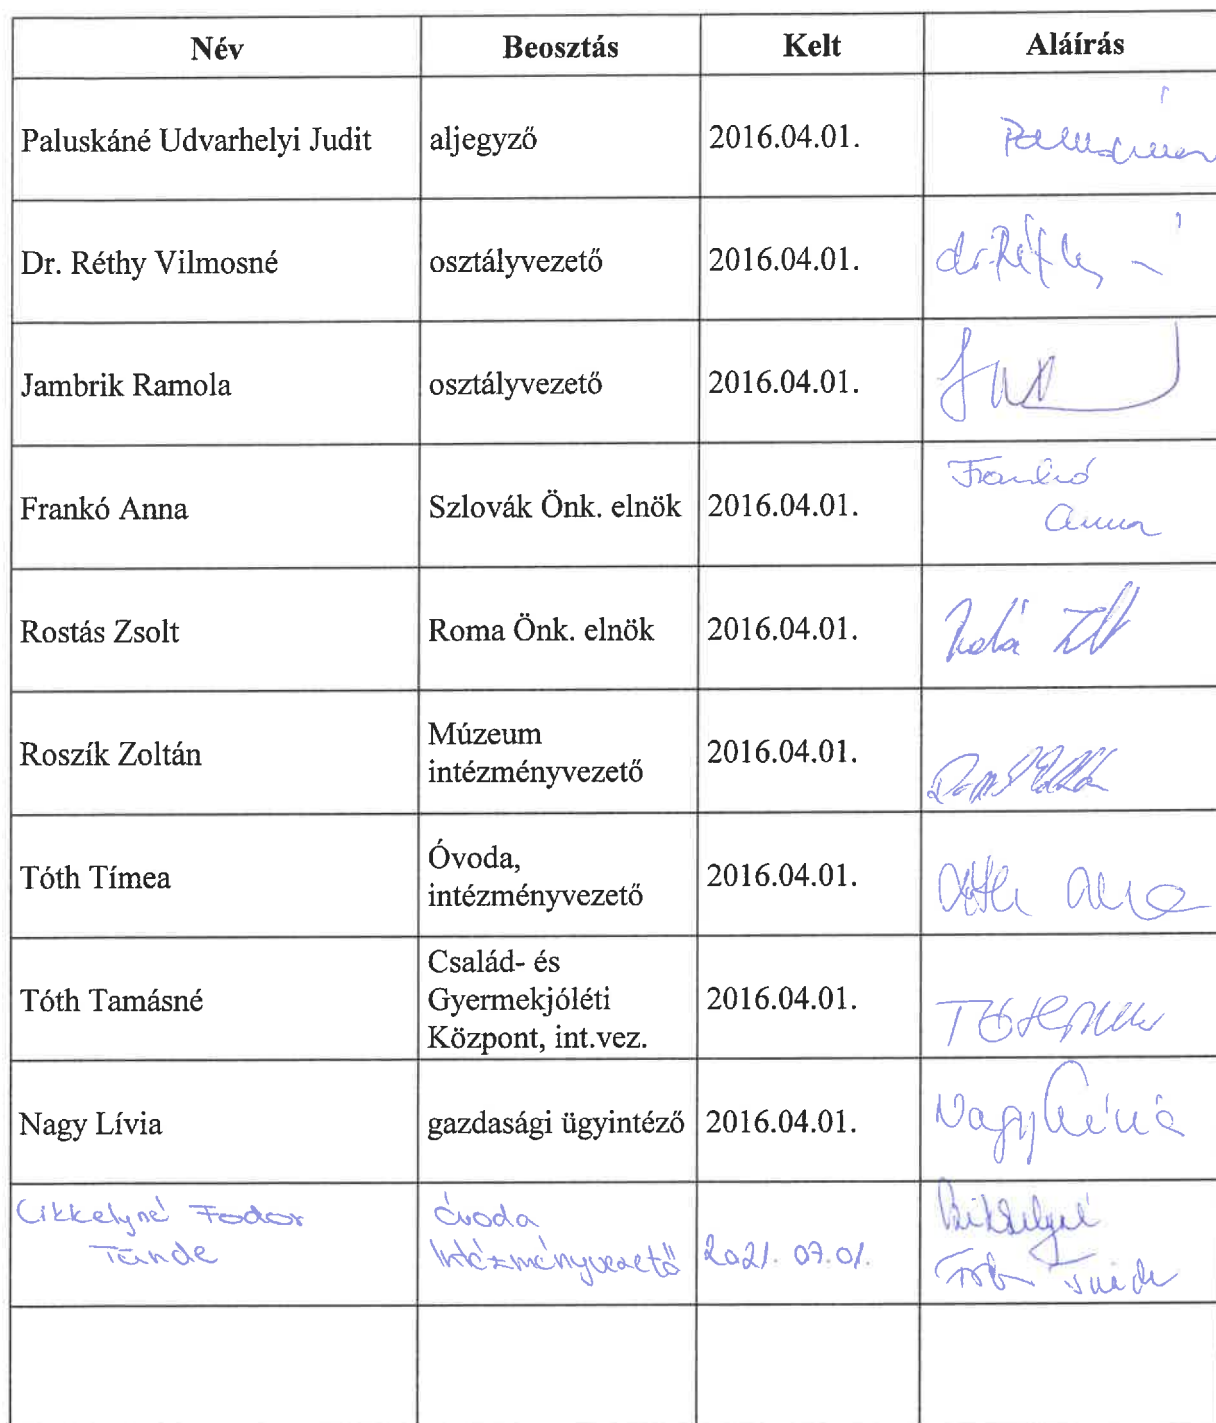 Név Beosztás Kelt Aláírás
Paluskáné Udvarhelyi Judit aljegyző 2016.04.01.
Dr. Réthy Vilmosné osztályvezető 2016.04.01. dr. Réthy
Jambrik Ramola osztályvezető 2016.04.01.
Frankó Anna Szlovák Önk. elnök 2016.04.01. Frankó
Anna
Rostás Zsolt Roma Önk. elnök 2016.04.01.
Roszík Zoltán Múzeum
intézményvezető 2016.04.01.
Tóth Tímea Óvoda,
intézményvezető 2016.04.01.
Tóth Tamásné Család- és
Gyermekjóléti
Központ, int.vez. 2016.04.01.
Nagy Lívia gazdasági ügyintéző 2016.04.01. Nagy Lívia
Cikkelyné Fodor
Tünde óvoda
Intézményvezető 2021. 07.01. Cikkelyné
Fodor Tünde